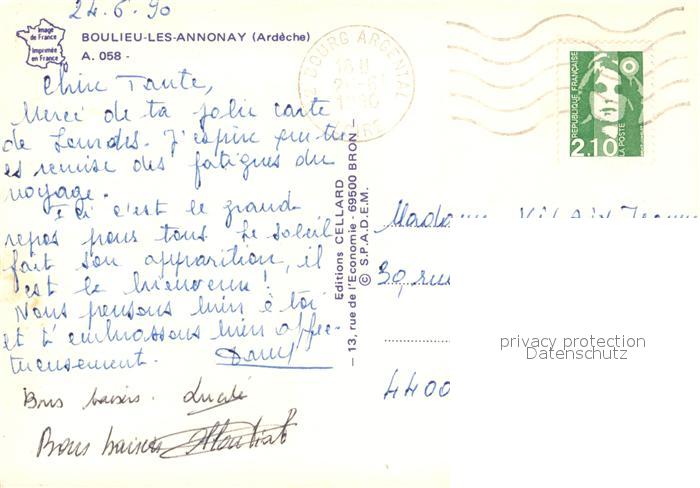 24.6.90
Image
de France
Imprimée
en France
BOULIEU-LES-ANNONAY (Ardèche)
A. 058 -
Chère Tante,
Merci de ta jolie carte
de Lourdes. J'espère que tu
es remise des fatigues du
voyage.
Ici c'est le grand
repos pour tous. Le soleil
fait son apparition, il
est le bienvenu !
Nous pensons bien à toi
et t'embrassons bien affec-
tueusement.
Bons baisers. Lucile
Bons baisers
Editions CELLARD
- 13, rue de l'Economie - 69500 BRON -
© S.P.A.D.E.M.
BOURG ARGENTAL
LOIRE
REPUBLIQUE FRANÇAISE
2.10
LA POSTE
Madame
39, rue
4400
privacy protection
Datenschutz